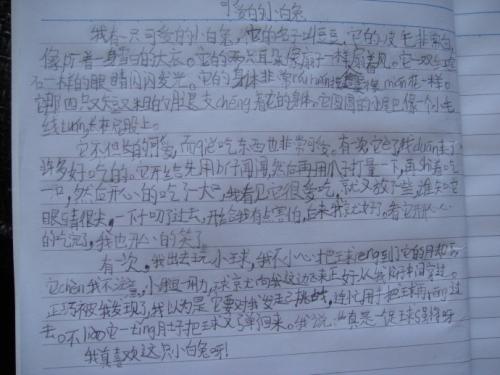 可爱的小白兔
我有一只可爱的小白兔,它的名子叫豆豆,它的皮毛非常白,
像所着一身雪白的大衣。它的两只耳朵像扇子一样扇着风。它一双红宝
石一样的眼睛闪闪发光。它的身体非常rou
棉mian花一样。
它那四只又短又粗的腿支chēng着花的身体。它圆圆的小尾巴像一个小毛
线 长在屁股上。
它不但长的可爱,而且吃东西也非常可爱。有一次它
许多好吃的。它开始先用bí子闻闻,然后再用爪子打量一下,再
一口,然后开心的吃了大口,我看见它很爱吃,就又放了些,谁知它
眼睛很尖,一下 过去,开始我有点害怕,后来我就 看它开心
的吃完了,我也开心的笑了。
有一次,我出去玩小球,我不小心把球rēng到了它的
它chèn我不注意,小 一用力,球 向我这边 正好从我 间穿过。
正巧被我发现了,我以为是它要对我发起挑战,连忙用手把球再rēng过
去。不 它一tǐng肚子把球又弹回来。我说:“真是一
我真喜欢这只小白兔呀!